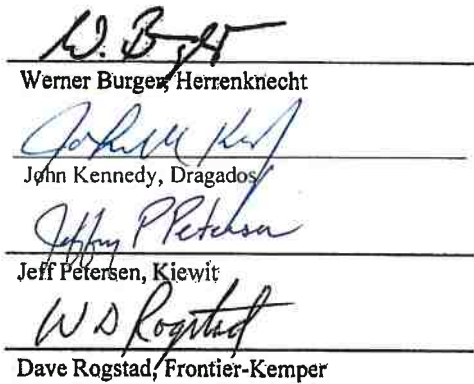 W. Burger
Werner Burger, Herrenknecht
John M Ken
John Kennedy, Dragados
Jeffry P Petersen
Jeff Petersen, Kiewit
W D Rogstad
Dave Rogstad, Frontier-Kemper